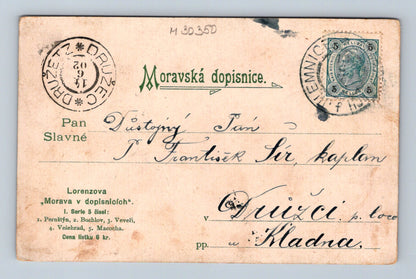 M 30350
DRUŽETZ * DRUŽEC *
14/6
02
Moravská dopisnice.
5 5
5 5
Pan
Slavné
Důstojný Pán
P. František Sír, kaplan
Lorenzova
„Morava v dopisnicích“
I. Serie 5 čísel:
1. Pernštýn, 2. Buchlov, 3. Veveří,
4. Velehrad, 5. Macocha.
Cena lístku 6 kr.
v Družci p. loco
pp. u Kladna.